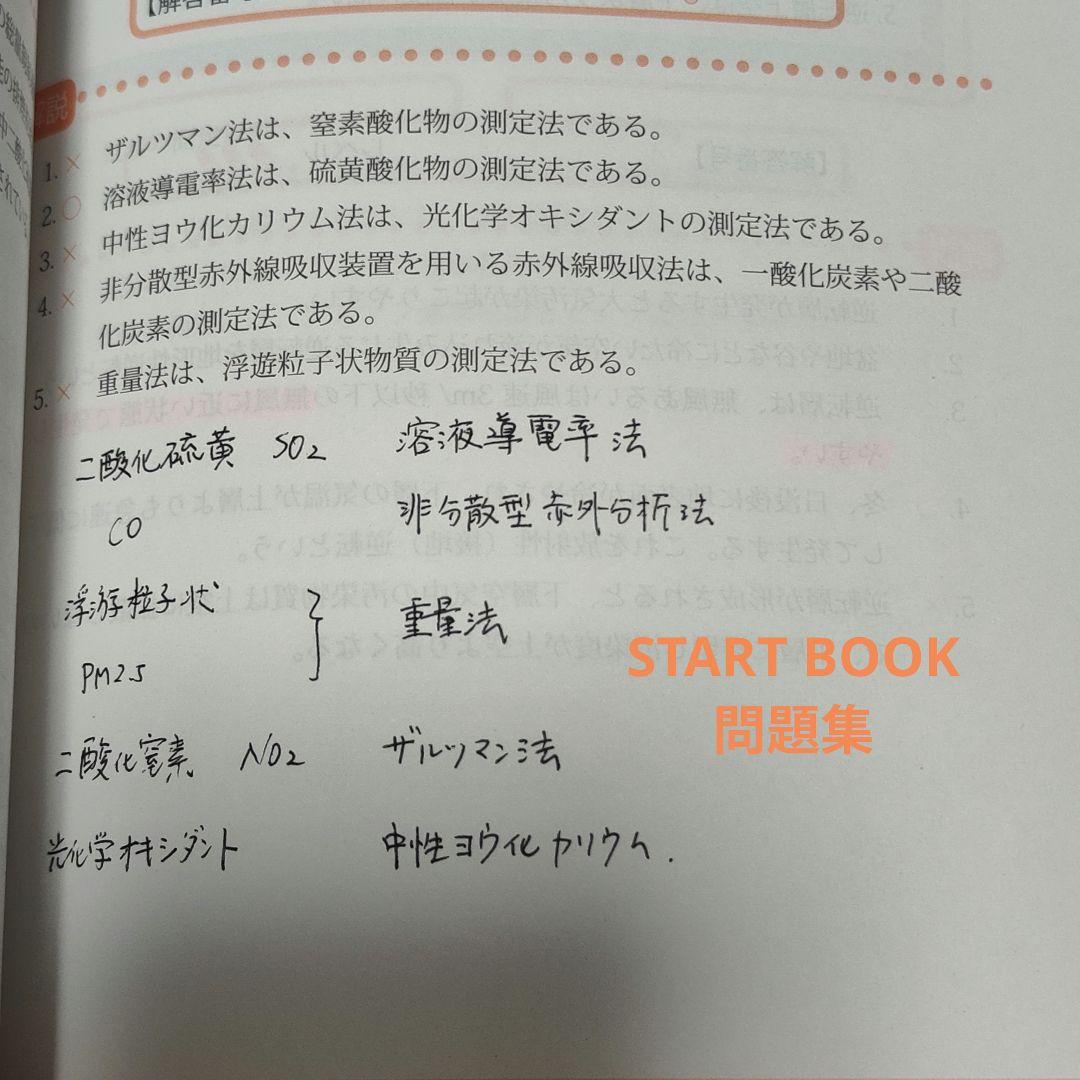 【解答番
解説
1. × ザルツマン法は、窒素酸化物の測定法である。
2. ○ 溶液導電率法は、硫黄酸化物の測定法である。
3. × 中性ヨウ化カリウム法は、光化学オキシダントの測定法である。
4. × 非分散型赤外線吸収装置を用いる赤外線吸収法は、一酸化炭素や二酸
化炭素の測定法である。
5. × 重量法は、浮遊粒子状物質の測定法である。
二酸化硫黄 SO2 溶液導電率法
CO 非分散型赤外分析法
浮游粒子状 } 重量法
PM2.5
二酸化窒素 NO2 ザルツマン法
光化学オキシダント 中性ヨウ化カリウム.
START BOOK
問題集